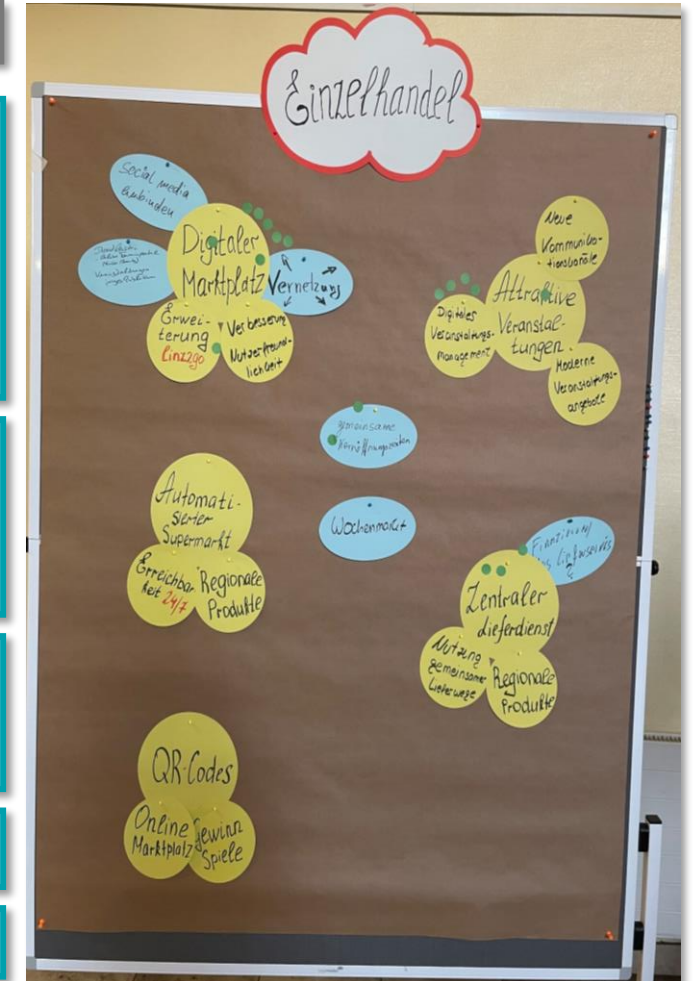 Einzelhandel
Social media
einbinden
Digitaler
Marktplatz
Vernetzung
Erwei-
terung
linz2go
Verbesserung
Nutzerfreund-
lichkeit
Neue
Kommunika-
tionskanäle
Attraktive
Veranstal-
tungen
Digitales
Veranstaltungs-
management
Moderne
Veranstaltungs-
angebote
Gemeinsame
Wochenmarkt
Automati-
sierter
Supermarkt
Erreichbar
keit 24/7
Regionale
Produkte
Finanzierung
Lieferservis
Zentraler
Lieferdienst
Nutzung
gemeinsamer
Lieferwege
Regionale
Produkte
QR-Codes
Online
Marktplatz
Gewinn
Spiele